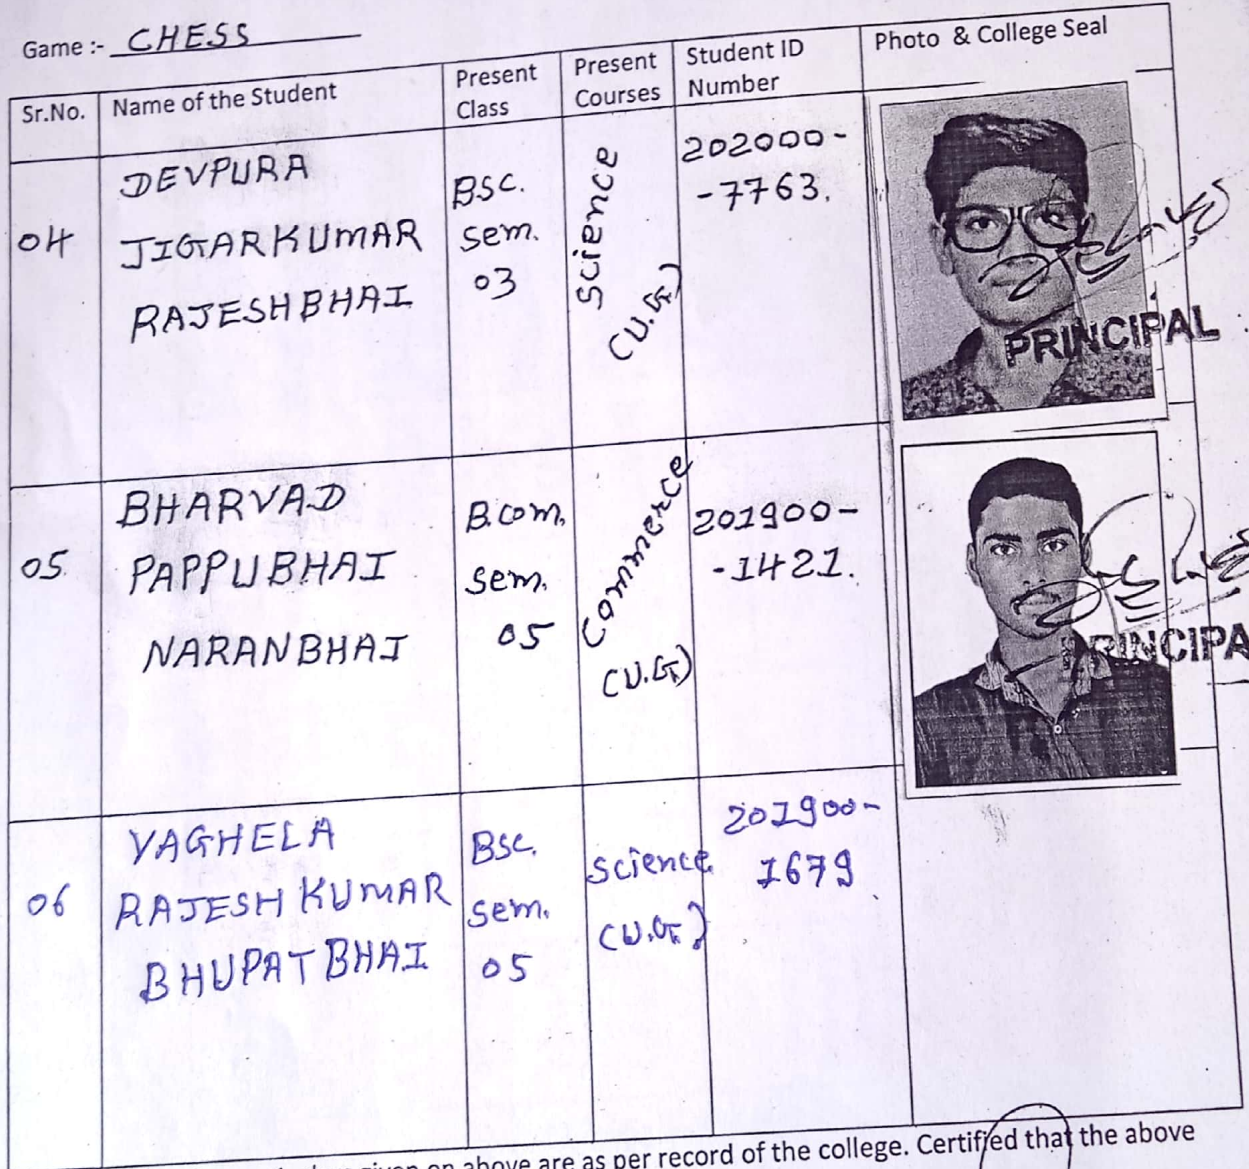 Game :- CHESS
Sr.No. Name of the Student Present Class Present Courses Student ID Number Photo & College Seal
04
DEVPURA
JIGARKUMAR
RAJESHBHAI
BSC.
sem.
03
Science
(U.G)
202000-
-7763.
PRINCIPAL
05
BHARVAD
PAPPUBHAI
NARANBHAI
B.com.
sem.
05
Commerce
(U.G)
201900-
-1421.
PRINCIPA
06
VAGHELA
RAJESHKUMAR
BHUPATBHAI
BSC.
sem.
05
science
(U.G)
201900-
1679
on above are as per record of the college. Certified that the above